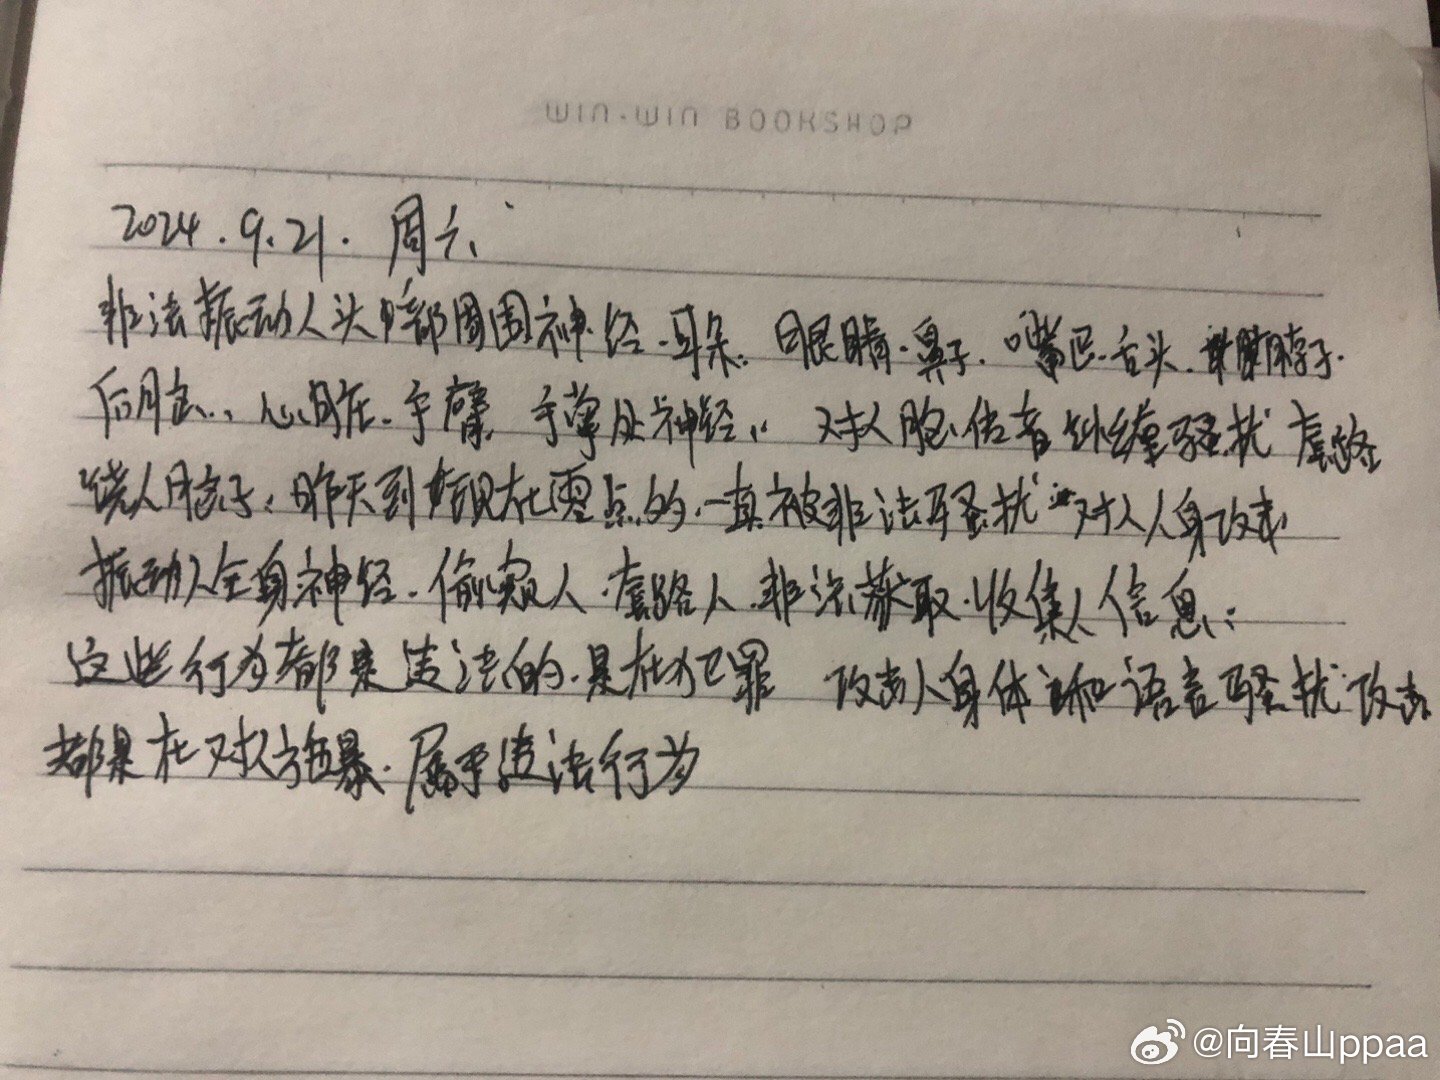 WIN.WIN BOOKSHOP
2024.9.21. 周六
非法振动人头部周围神经.耳朵.眼睛.鼻子.嘴巴.舌头.脖子.
后背..心脏.手臂 手掌处神经.. 对人 纠缠骚扰 套路
绕人脖子.昨天到现在零点的.一直被非法骚扰 对人人身攻击
振动人全身神经.偷窥人.套路人.非法获取.收集人信息.
这些行为都是违法的.是在犯罪 攻击人身体和语言骚扰攻击
都是在对人施暴.属于违法行为
@向春山ppaa